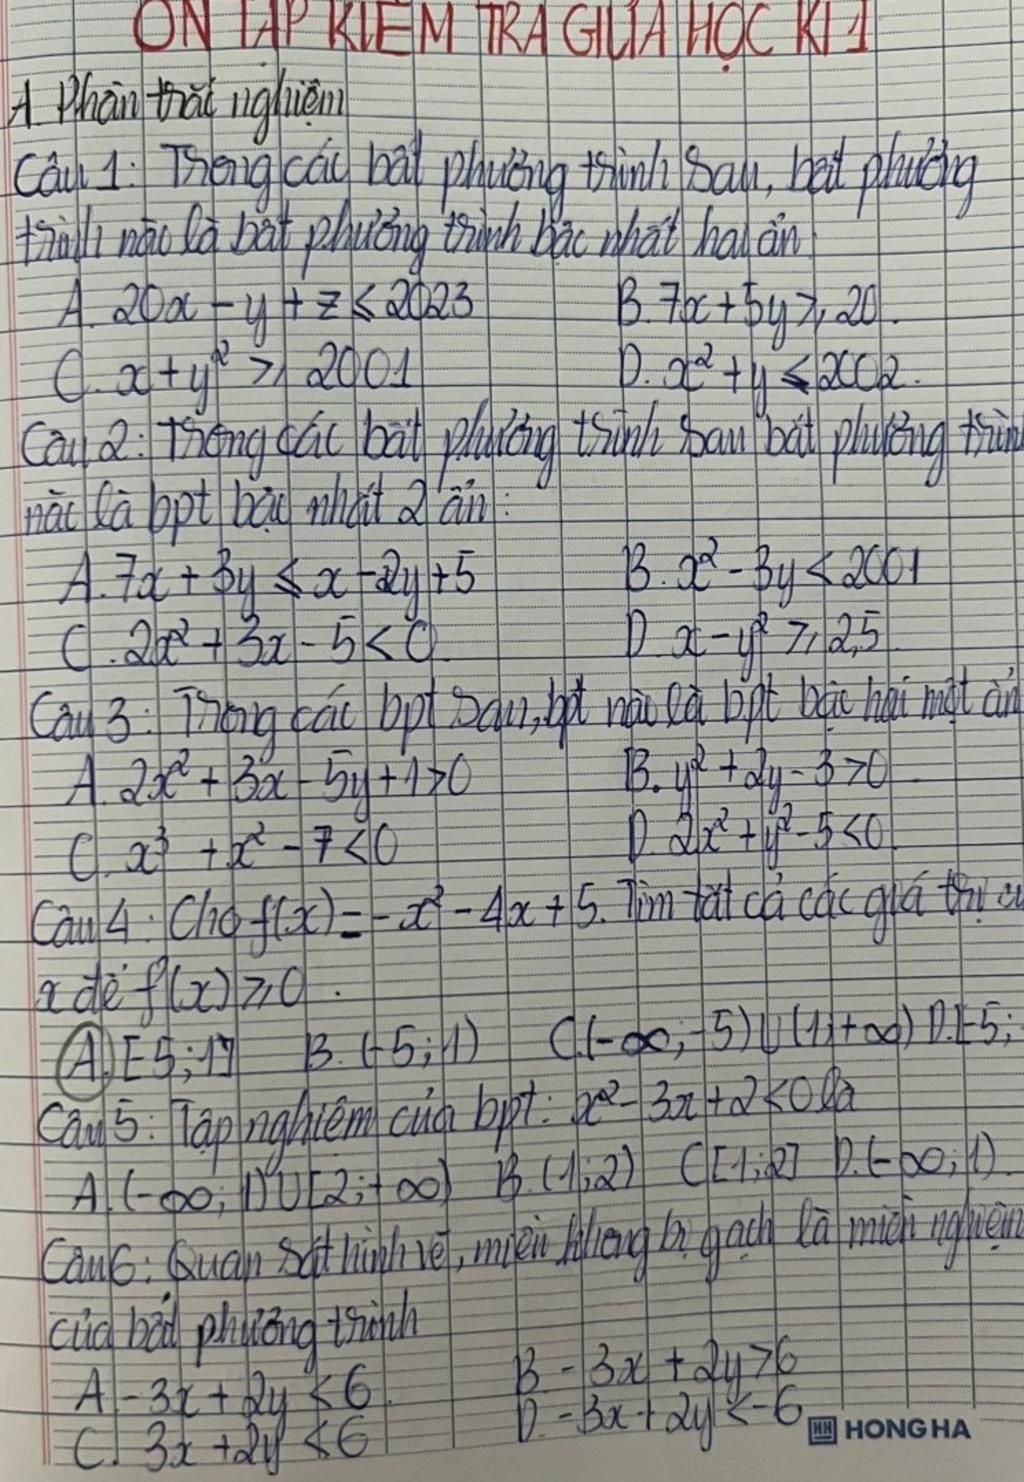 ÔN TẬP KIỂM TRA GIỮA HỌC KÌ 1
A. Phần trắc nghiệm
Câu 1: Trong các bất phương trình sau, bất phương
trình nào là bất phương trình bậc nhất hai ẩn
A. 20x - y + z ≤ 2023 B. 7x + 5y ≥ 20.
C. x + y² ≥ 2001 D. x² + y ≤ 2002.
Câu 2: Trong các bất phương trình sau bất phương trình
nào là bpt bậc nhất 2 ẩn:
A. 7x + 3y ≤ x - 2y + 5 B. x² - 3y < 2001
C. 2x² + 3x - 5 < 0 D. x - y² ≥ 2,5
Câu 3: Trong các bpt sau, bpt nào là bpt bậc hai một ẩn
A. 2x² + 3x - 5y + 1 > 0 B. y² + 2y - 3 > 0
C. x³ + x² - 7 < 0 D. 2x² + y² - 5 < 0
Câu 4: Cho f(x) = -x² - 4x + 5. Tìm tất cả các giá trị
x để f(x) ≥ 0.
A. [-5; 1] B. (-5; 1) C. (-∞; -5) ∪ (1; +∞) D. [-5;
Câu 5: Tập nghiệm của bpt: x² - 3x + 2 < 0 là
A. (-∞; 1) ∪ [2; +∞) B. (1; 2) C. [1; 2] D. (-∞; 1).
Câu 6: Quan sát hình vẽ, miền không bị gạch là miền nghiệm
của bất phương trình
A. -3x + 2y < 6 B. -3x + 2y > 6
C. 3x + 2y < 6 D. -3x + 2y < -6
HONG HA